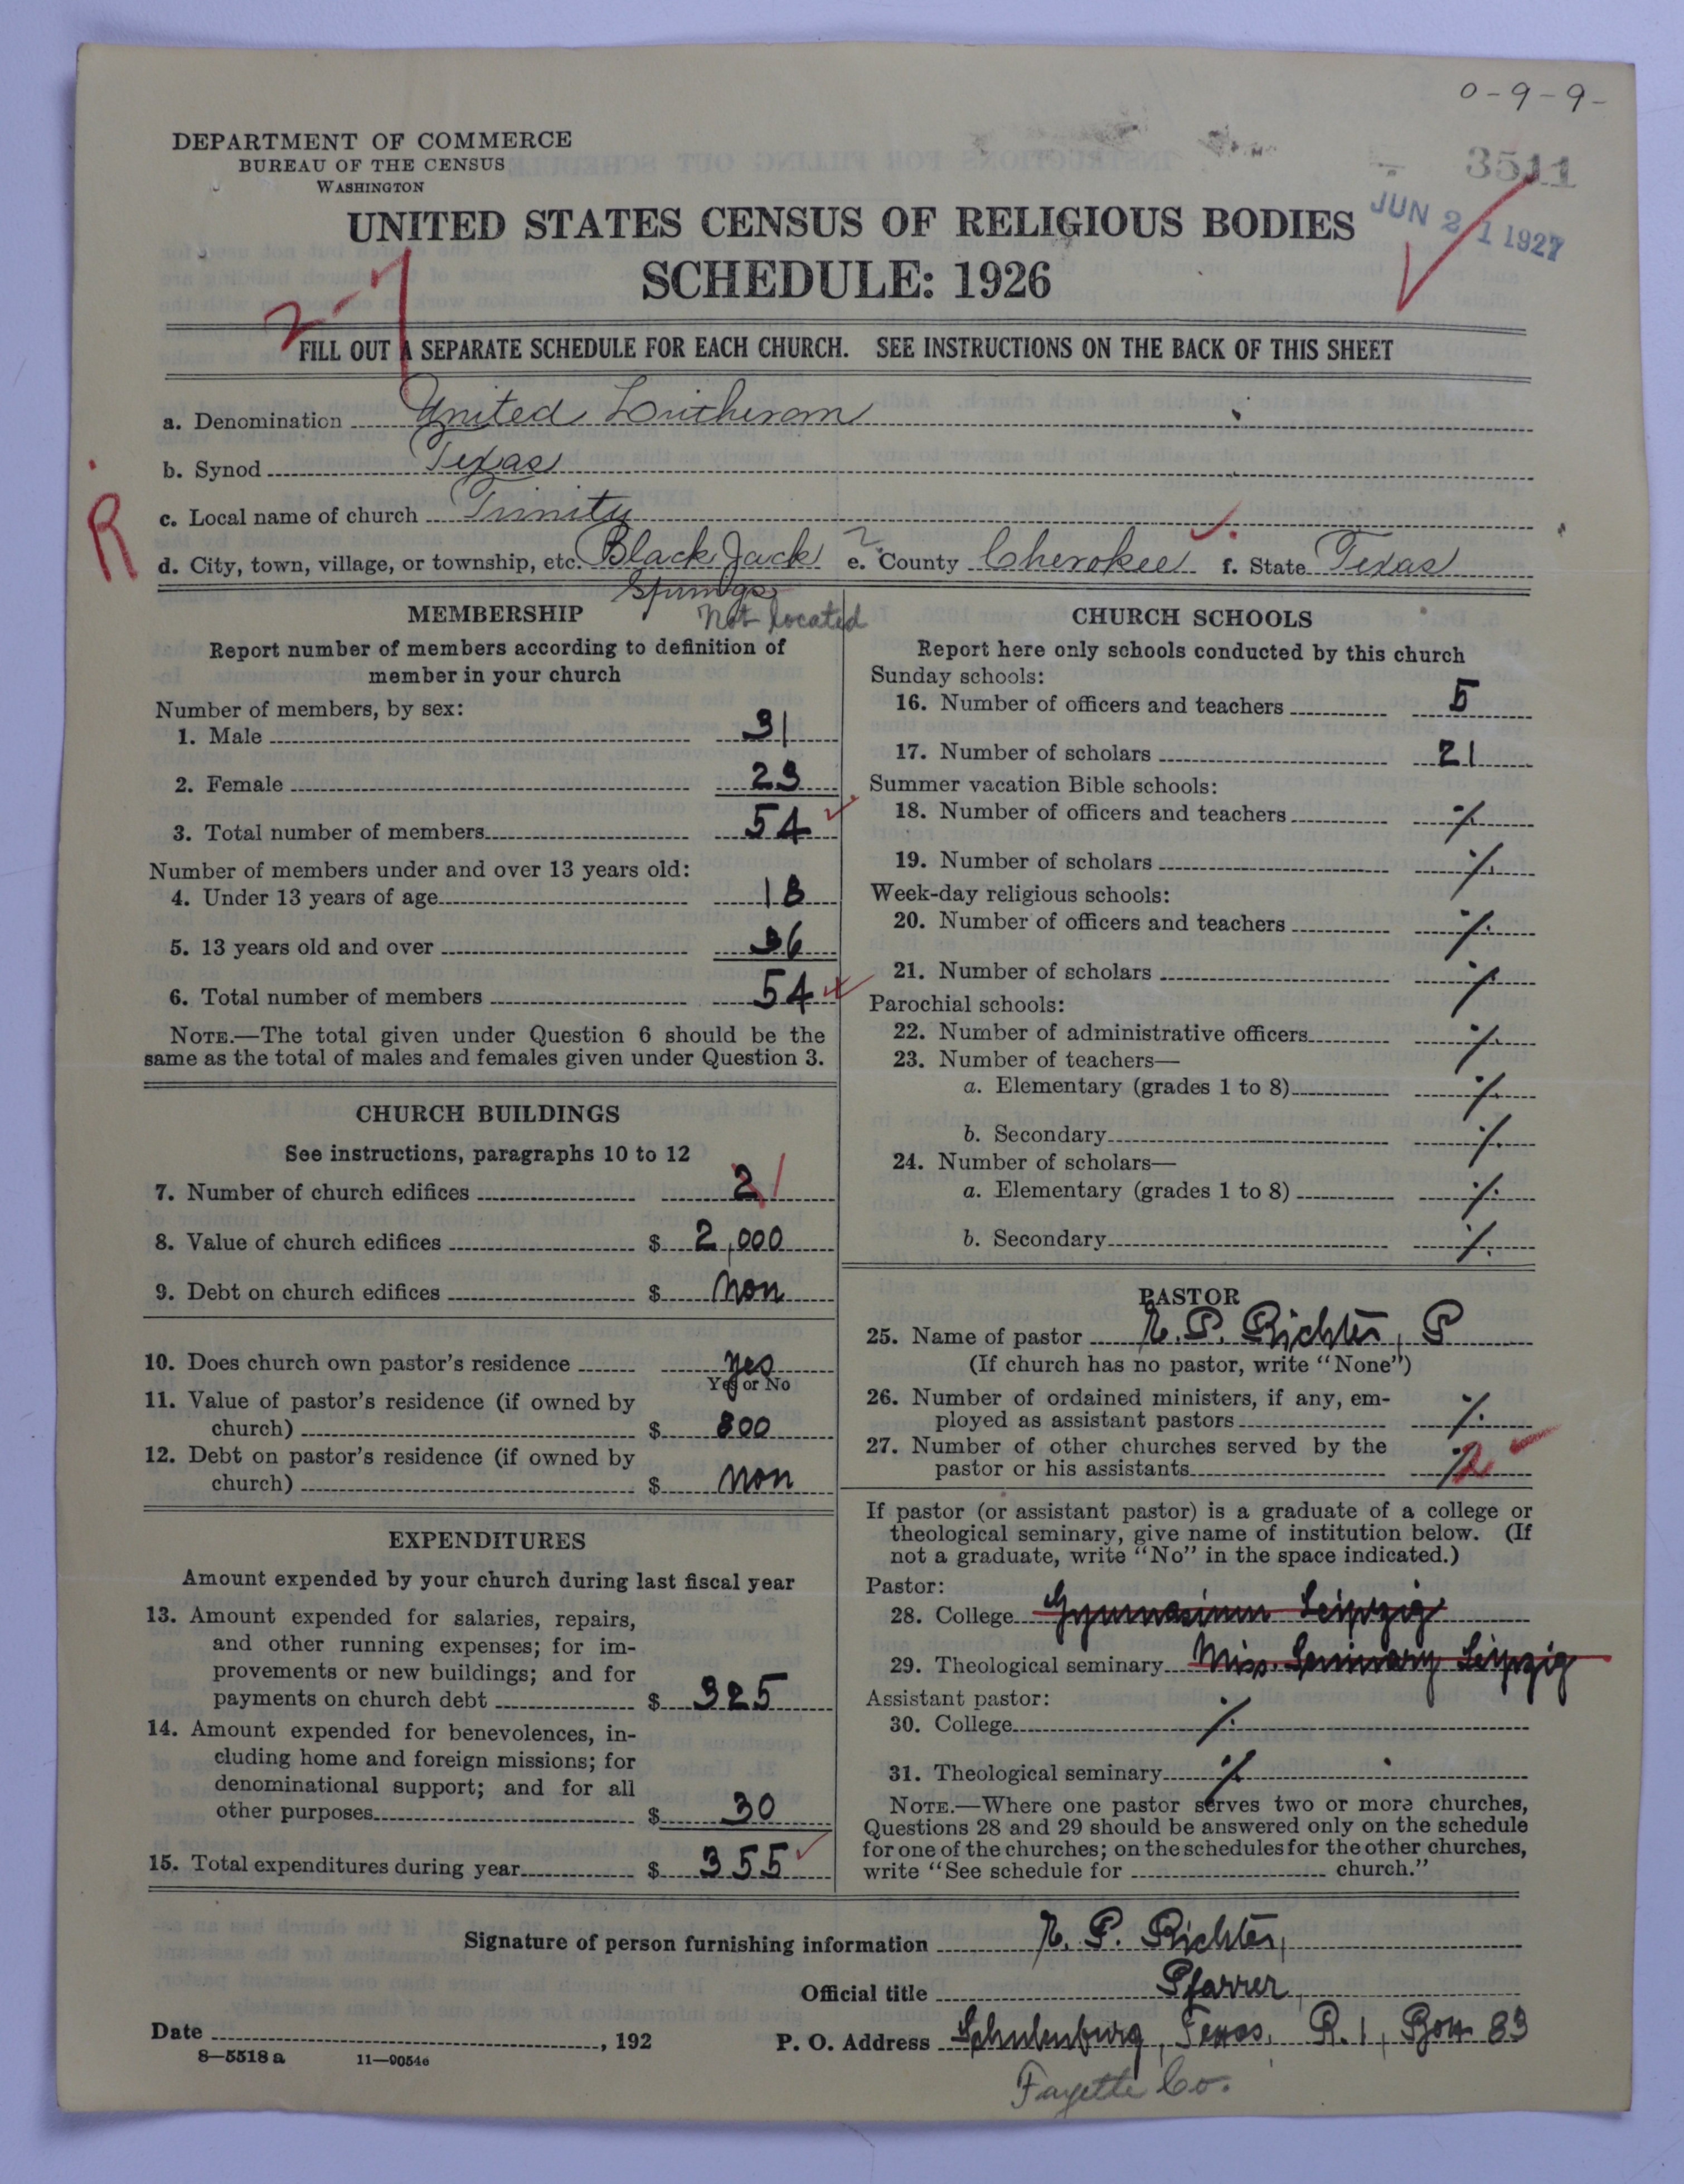 0-9-9-
DEPARTMENT OF COMMERCE
BUREAU OF THE CENSUS
WASHINGTON
3511
JUN 21 1927
UNITED STATES CENSUS OF RELIGIOUS BODIES
SCHEDULE: 1926
2-1
FILL OUT A SEPARATE SCHEDULE FOR EACH CHURCH. SEE INSTRUCTIONS ON THE BACK OF THIS SHEET
a. Denomination United Lutheran
b. Synod Texas
R
c. Local name of church Trinity
d. City, town, village, or township, etc. Black Jack Springs e. County Cherokee f. State Texas
?
Not located
MEMBERSHIP
Report number of members according to definition of
member in your church
Number of members, by sex:
1. Male 31
2. Female 23
3. Total number of members 54
Number of members under and over 13 years old:
4. Under 13 years of age 18
5. 13 years old and over 36
6. Total number of members 54
NOTE.—The total given under Question 6 should be the
same as the total of males and females given under Question 3.
CHURCH BUILDINGS
See instructions, paragraphs 10 to 12
7. Number of church edifices 2 1
8. Value of church edifices $ 2,000
9. Debt on church edifices $ non
10. Does church own pastor's residence yes
Yes or No
11. Value of pastor's residence (if owned by
church) $ 800
12. Debt on pastor's residence (if owned by
church) $ non
EXPENDITURES
Amount expended by your church during last fiscal year
13. Amount expended for salaries, repairs,
and other running expenses; for im-
provements or new buildings; and for
payments on church debt $ 325
14. Amount expended for benevolences, in-
cluding home and foreign missions; for
denominational support; and for all
other purposes $ 30
15. Total expenditures during year $ 355
CHURCH SCHOOLS
Report here only schools conducted by this church
Sunday schools:
16. Number of officers and teachers 5
17. Number of scholars 21
Summer vacation Bible schools:
18. Number of officers and teachers ·/.
19. Number of scholars ·/.
Week-day religious schools:
20. Number of officers and teachers ·/.
21. Number of scholars ·/.
Parochial schools:
22. Number of administrative officers ·/.
23. Number of teachers—
a. Elementary (grades 1 to 8) ·/.
b. Secondary ·/.
24. Number of scholars—
a. Elementary (grades 1 to 8) ·/.
b. Secondary ·/.
PASTOR
25. Name of pastor R. P. Richter, P
(If church has no pastor, write "None")
26. Number of ordained ministers, if any, em-
ployed as assistant pastors ·/.
27. Number of other churches served by the
pastor or his assistants ·/. 2
If pastor (or assistant pastor) is a graduate of a college or
theological seminary, give name of institution below. (If
not a graduate, write "No" in the space indicated.)
Pastor:
28. College Gymnasium Leipzig
29. Theological seminary Miss. Seminary Leipzig
Assistant pastor:
30. College ·/.
31. Theological seminary ·/.
NOTE.—Where one pastor serves two or more churches,
Questions 28 and 29 should be answered only on the schedule
for one of the churches; on the schedules for the other churches,
write "See schedule for church."
Signature of person furnishing information R. P. Richter,
Official title Pfarrer,
Date , 192 P. O. Address Schulenburg, Texas, R. 1, Box 83
8—5518 a 11—9054e
Fayette Co.